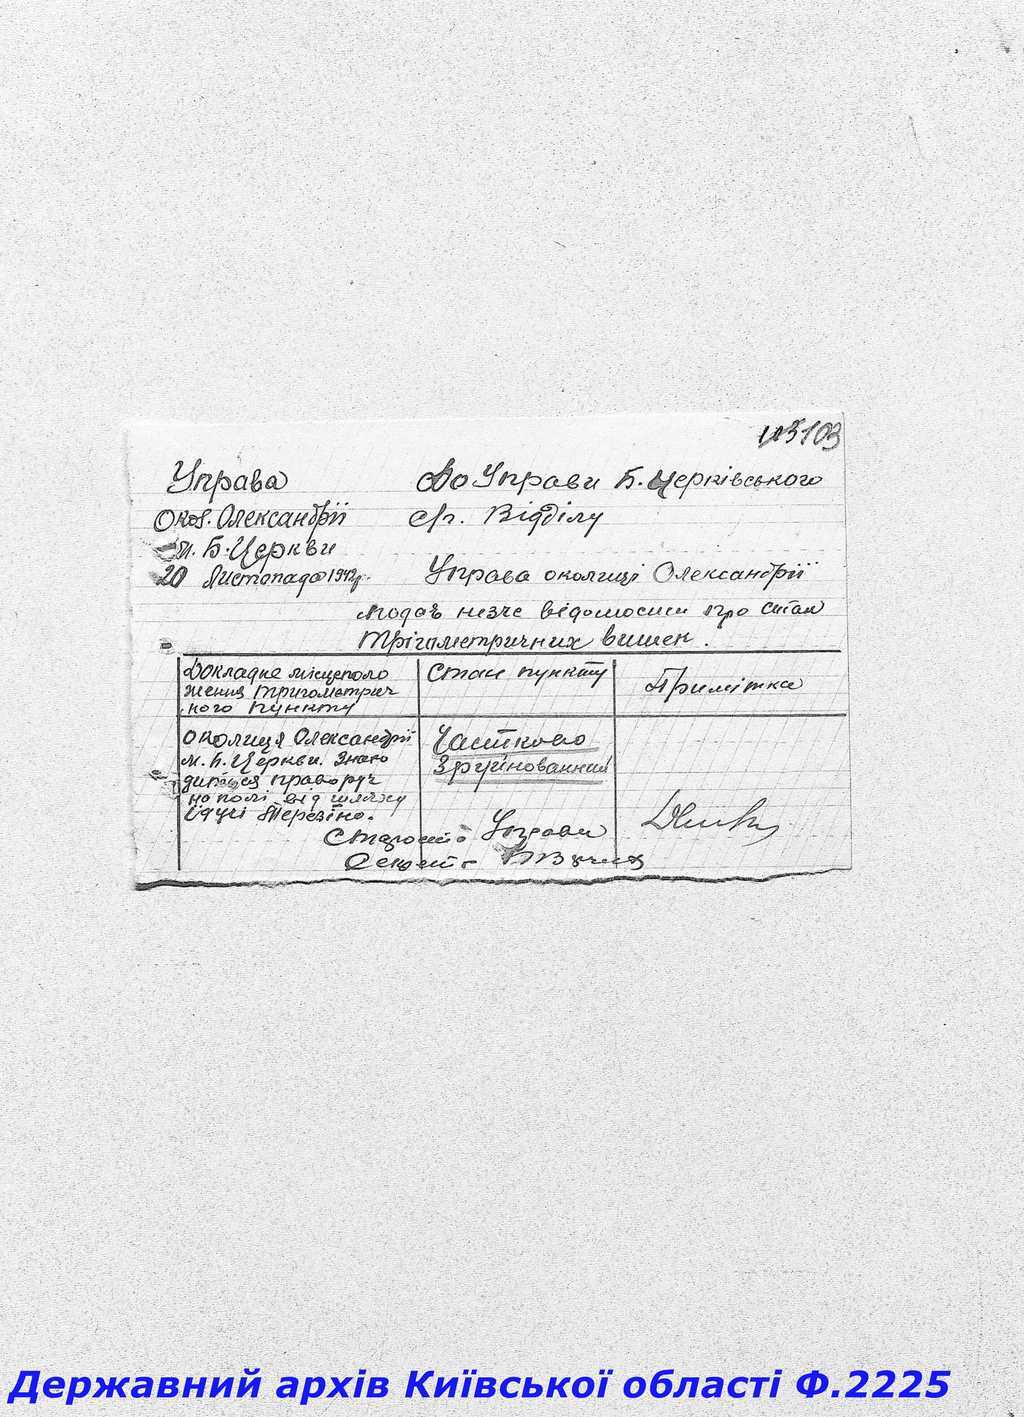 103
Управа
Окол. Олександрії
м. Б. Церкви
20 Листопада 1942р.
До Управи Б. Церківського
Відділу
Управа околиці Олександрії
подає незче відомосиси про стан
Трігометричних вишек.
Докладне місцеполо
жения тригометрич
ного пункту
Стан пункту
Примітка
околиця Олександрії
м. Б. Церкви. Знахо
диться праворуч
на полі від шляху
ідучі Терезіно.
Частково
Зруйнованний
Староста Управи
Секрет
Державний архів Київської області Ф.2225